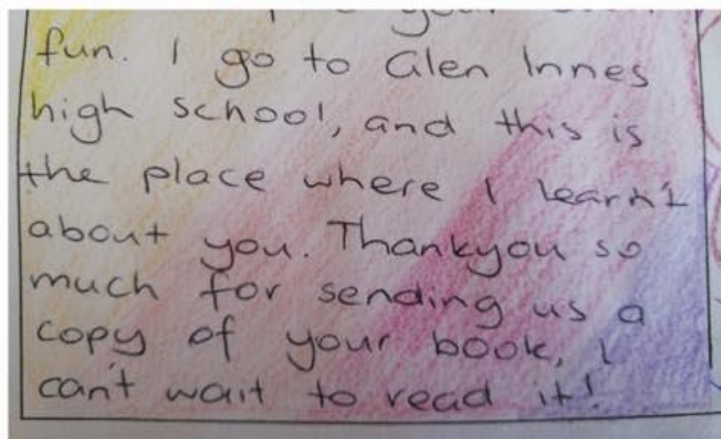 fun. I go to Glen Innes
high school, and this is
the place where I learn't
about you. Thankyou so
much for sending us a
copy of your book, I
can't wait to read it!